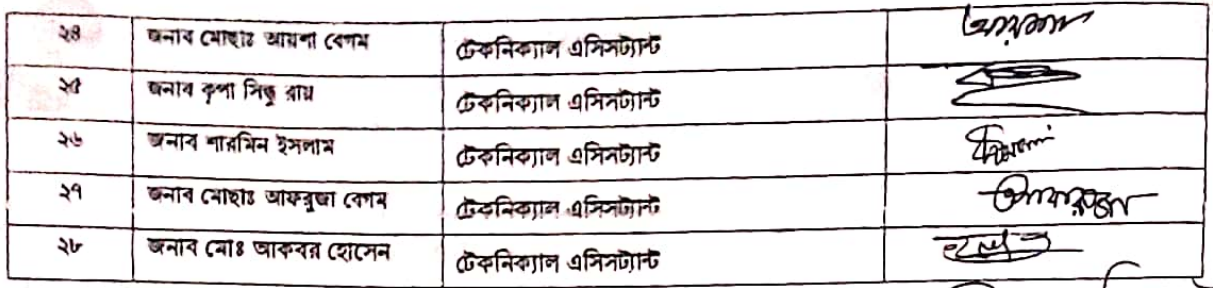 ২৪ জনাব মোছাঃ আয়না বেগম টেকনিক্যাল এসিসট্যান্ট
২৫ জনাব কৃপা সিন্ধু রায় টেকনিক্যাল এসিসট্যান্ট
২৬ জনাব শারমিন ইসলাম টেকনিক্যাল এসিসট্যান্ট
২৭ জনাব মোছাঃ আফরুজা বেগম টেকনিক্যাল এসিসট্যান্ট
২৮ জনাব মোঃ আকবর হোসেন টেকনিক্যাল এসিসট্যান্ট